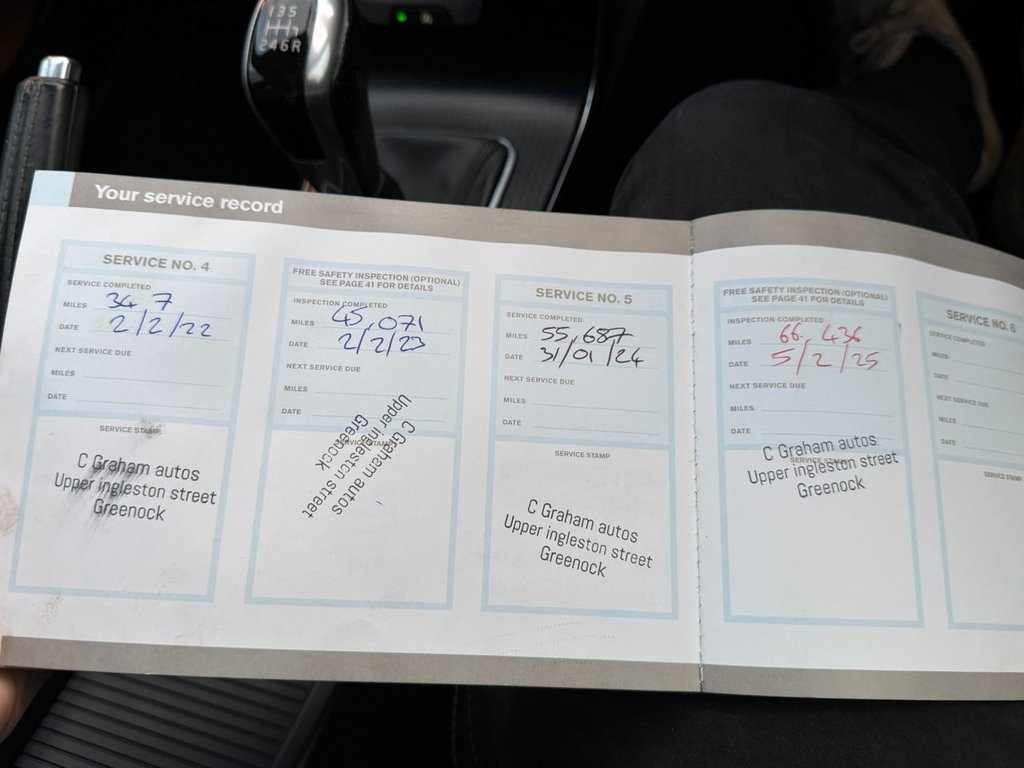 1 3 5
2 4 6 R
Your service record
SERVICE NO. 4
SERVICE COMPLETED
MILES 34 7
DATE 2/2/22
NEXT SERVICE DUE
MILES
DATE
SERVICE STAMP
C Graham autos
Upper ingleston street
Greenock
FREE SAFETY INSPECTION (OPTIONAL)
SEE PAGE 41 FOR DETAILS
INSPECTION COMPLETED
MILES 45,071
DATE 2/2/23
NEXT SERVICE DUE
MILES
DATE
SERVICE STAMP
C Graham autos
Upper ingleston street
Greenock
SERVICE NO. 5
SERVICE COMPLETED
MILES 55,687
DATE 31/01/24
NEXT SERVICE DUE
MILES
DATE
SERVICE STAMP
C Graham autos
Upper ingleston street
Greenock
FREE SAFETY INSPECTION (OPTIONAL)
SEE PAGE 41 FOR DETAILS
INSPECTION COMPLETED
MILES 66,436
DATE 5/2/25
NEXT SERVICE DUE
MILES
DATE
SERVICE STAMP
C Graham autos
Upper ingleston street
Greenock
SERVICE NO. 6
SERVICE COMPLETED
MILES
DATE
NEXT SERVICE DUE
MILES
DATE
SERVICE STAMP